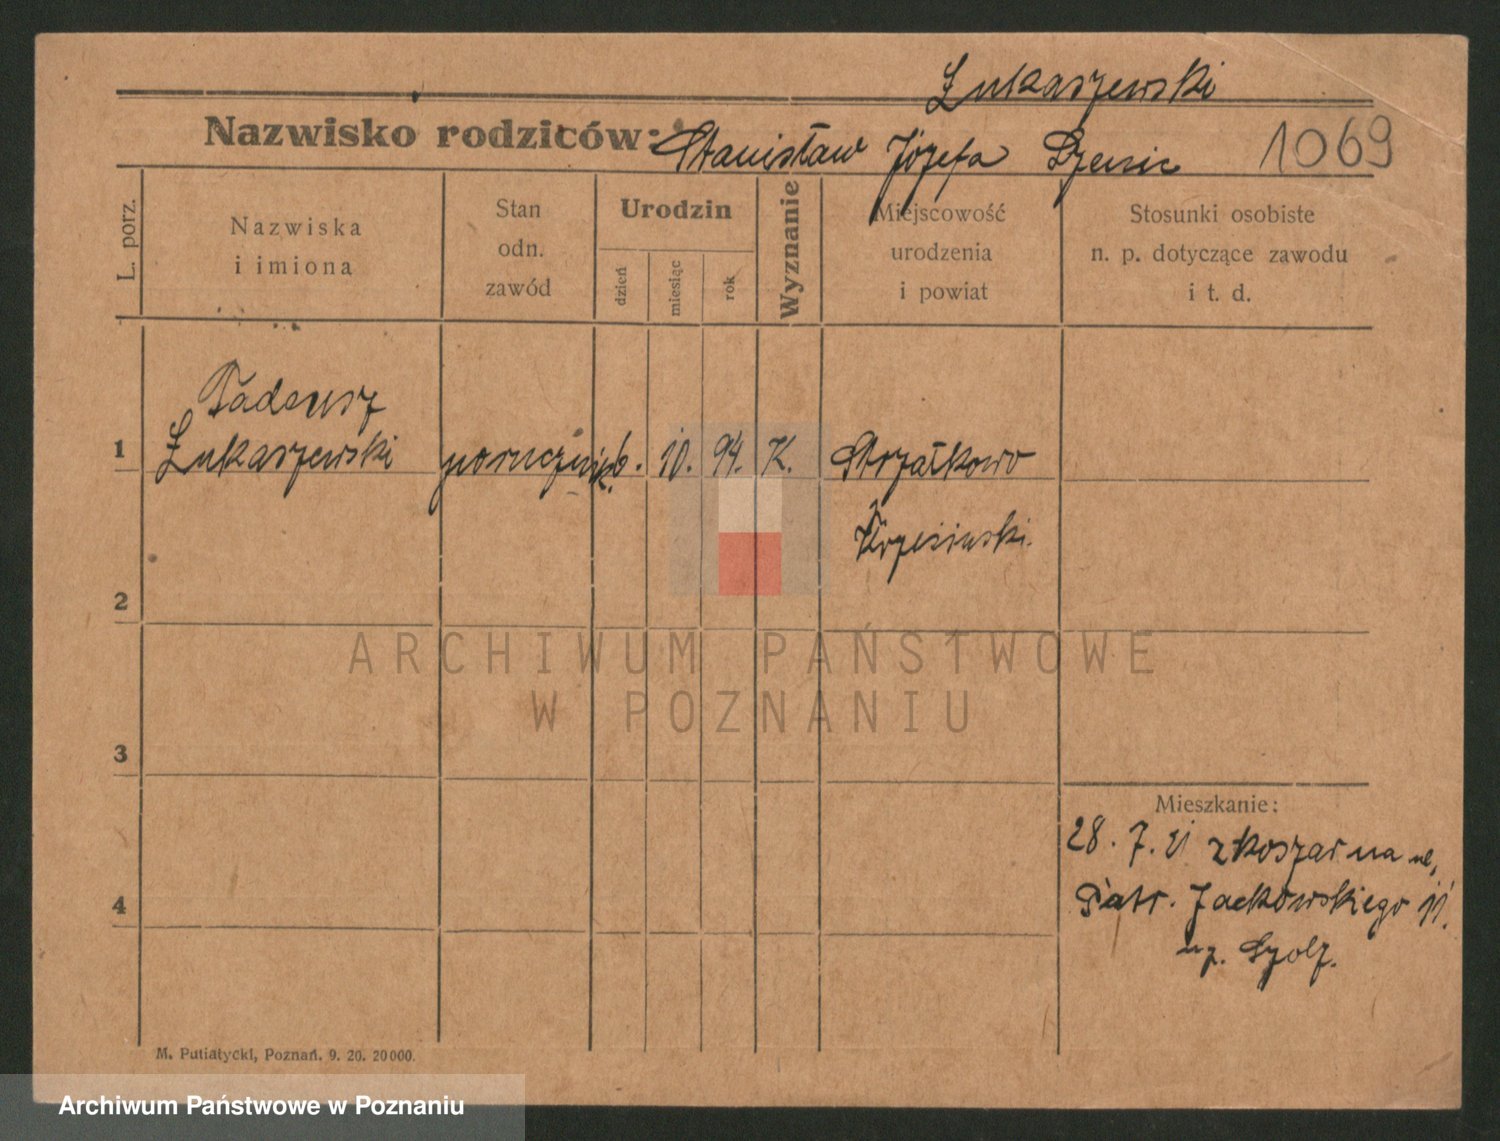 Łukaszewski
Nazwisko rodziców: Stanisław Józefa Szenic 1069
L. porz.
Nazwiska
i imiona
Stan
odn.
zawód
Urodzin
dzień
miesiąc
rok
Wyznanie
Miejscowość
urodzenia
i powiat
Stosunki osobiste
n. p. dotyczące zawodu
i t. d.
Tadeusz
1 Łukaszewski porucznik 6. 10. 94. K. Strzałkowo
2
ARCHIWUM PAŃSTWOWE
W POZNANIU
3
Mieszkanie:
28. 7. 21 z koszar na ul,
Patr. Jackowskiego 11.
4
M. Putiatycki, Poznań. 9. 20. 20000.
Archiwum Państwowe w Poznaniu